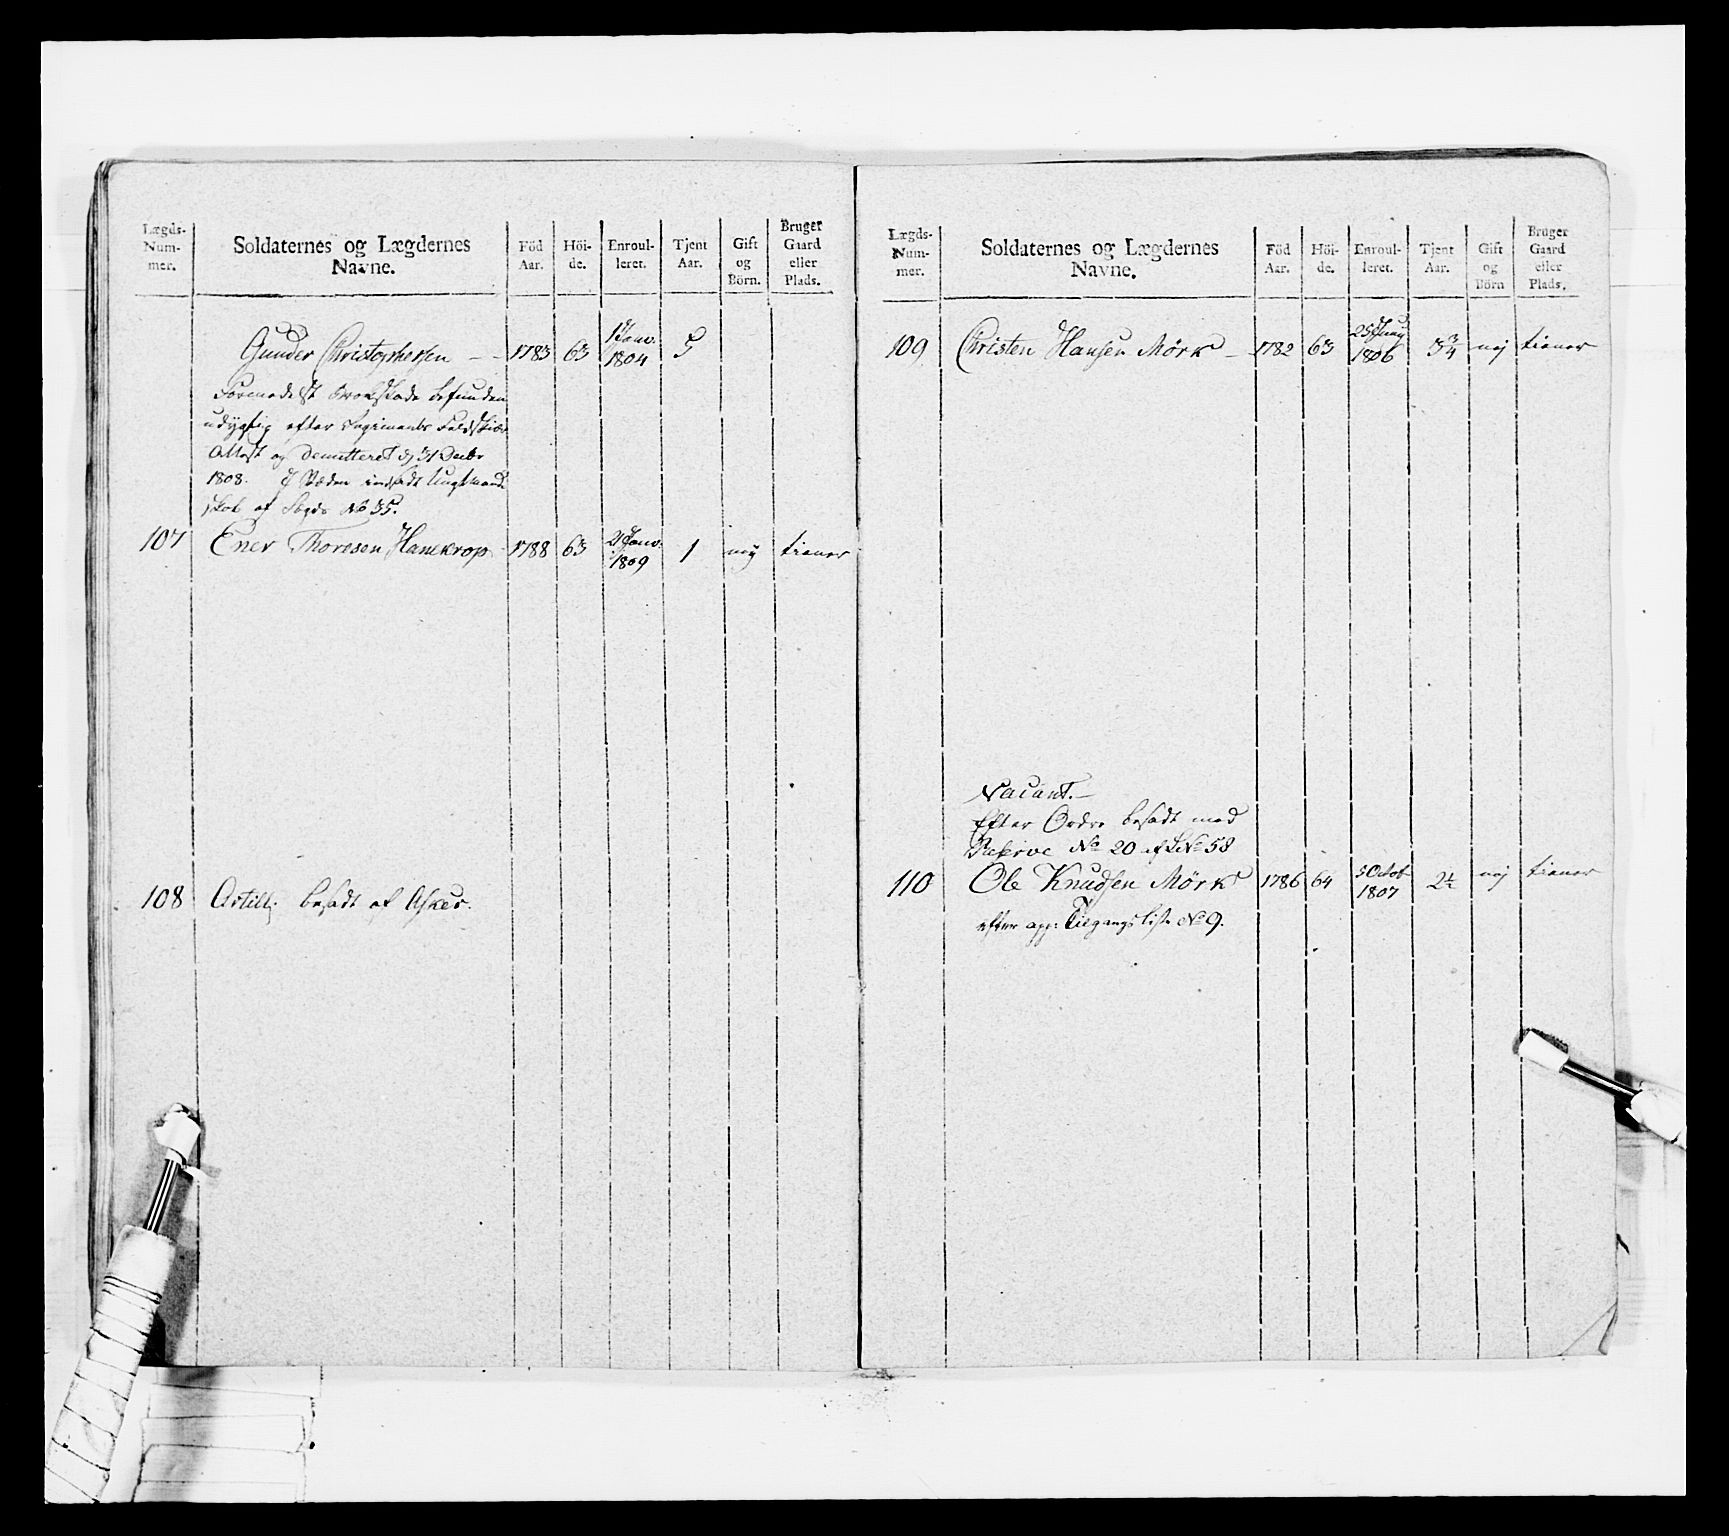 Lægds-Num-mer. Soldaternes og Lægdernes Navne. Föd Aar. Höi-de. Enroul-leret. Tjent Aar. Gift og Börn. Bruger Gaard eller Plads.
Gunder Christophersen - - 1783 63 1 Janv. 1804 5
Formedelst Brokskade befunden
udygtig efter Regiments Feldskiær
Attest og demitteret d 31 Decbr
1808. I Stæden indsadt
skab af Lægds No 35.
107 Ener Thoresen Hanekrop 1788 63 2 Janv. 1809 1 nej tiener
108 Artill: besadt af Asker.
Lægds-Num-mer. Soldaternes og Lægdernes Navne. Föd Aar. Höi-de. Enroul-leret. Tjent Aar. Gift og Börn Bruger Gaard eller Plads.
109 Christen Hansen Mörk - 1782 63 25 1806 3 3/4 nej tiener
Vacant. -
Efter Ordre besadt med
Reserve No 20 af L No 58
110 Ole Knudsen Mörk 1786 64 5 Octob 1807 2 1/4 nej tiener
efter app: Tilgangs Liste No 9.